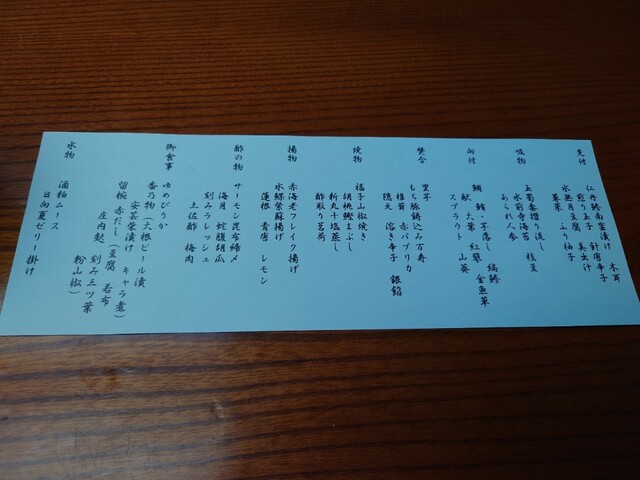 先付
仁丹鯵南蛮漬け 木耳
煎り玉子 針唐辛子
水無月豆腐 美出汁
蓴菜 ふり柚子
吸物
玉蜀黍摺り流し 枝豆
水前寺海苔
あられ人参
向付
鯛 鮪 子落し 縞鯵
献 大葉 紅蓼 金魚草
スプラウト 山葵
焚合
里芋
もち豚鋳込み万寿
椎茸 赤パプリカ
隠元 溶き辛子 銀餡
焼物
福子山椒焼き
胡桃鰹まぶし
新丸十塩蒸し
酢取り茗荷
揚物
赤海老フレイク揚げ
水鱧紫蘇揚げ
蓮根 青唐 レモン
酢の物
サーモン昆布締メ
海月 蛇腹胡瓜
刻みラレッシュ
土佐酢 梅肉
御食事
ゆめぴりか
香乃物(大根ビール漬
安芸菜漬け キャラ煮)
留椀 赤だし(豆腐 若布
庄内麩 刻み三ツ葉
粉山椒)
水物
酒粕ムース
日向夏ゼリー掛け